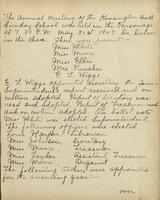 The Annual Meeting of the Kensington Hall
Sunday School was held in the Parsonage
At 7. P.M. May 31st 1907 Dr. 
in the Chair. There were present:-
Miss White
Miss Moore
Miss Ellis
Mrs
E. L. Higgs
E. L. Higgs appointed Secretary the
Superintendent's report received and on
motion adopted. Report of Secretary was
read and adopted. Report of Treasurer read
and on motion adopted. By ballot vote
Miss White was elected Superintendent.
The following officers were elected
Librarian
Miss Secretary
Miss Moore Treasurer
Miss Taylor Assistant Treasurer
Miss Moore Organist
The following teachers were appointed for
the ensuing year:-
over